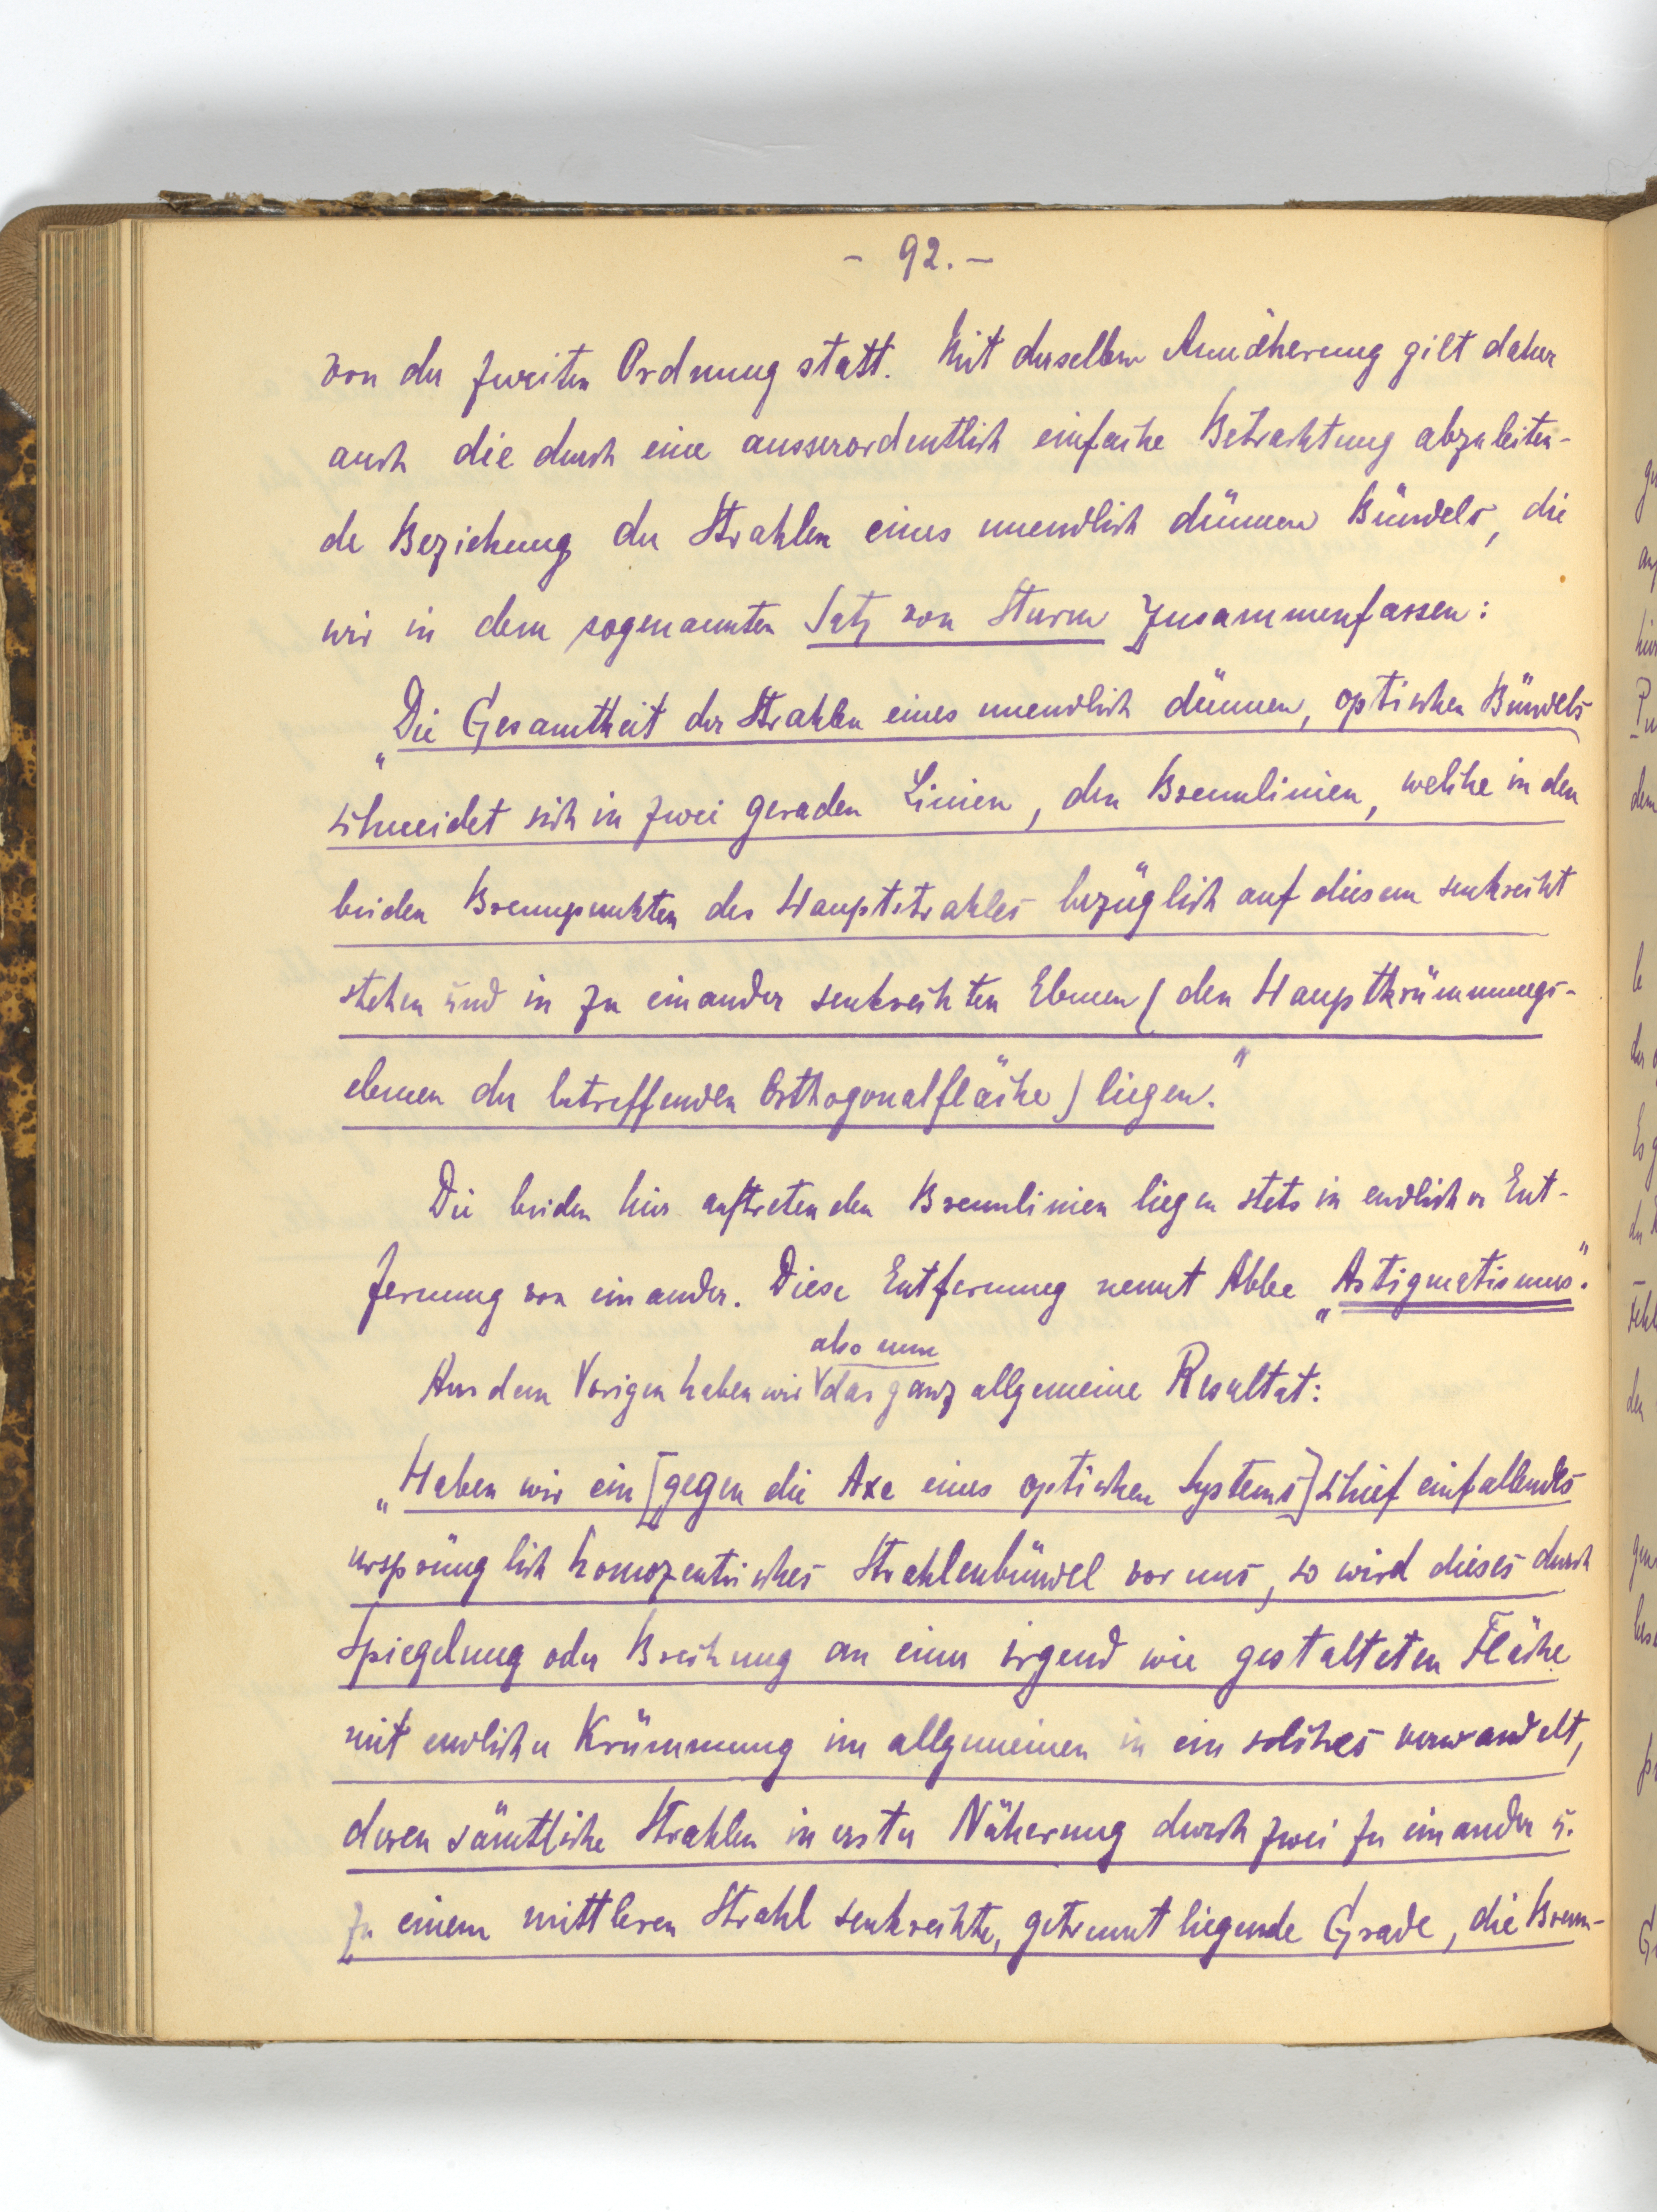 - 92. -
von der zweiten Ordnung statt. Mit derselben Annäherung gilt daher
auch die durch eine ausserordentlich einfache Betrachtung abzuleiten-
de Beziehung der Strahlen eines unendlich dünnen Bündels, die
wir in dem sogenannten Satz von Sturm zusammenfassen:
„Die Gesamtheit der Strahlen eines unendlich dünnen, optischen Bündels
schneidet sich in zwei geraden Linien, den Brennlinien, welche in den
beiden Brennpunkten des Hauptstrahles bezüglich auf diesem senkrecht
stehen und in zu einander senkrechten Ebenen (den Hauptkrümmungs-
ebenen der betreffenden Orthogonalfläche) liegen."
Die beiden hier auftretenden Brennlinien liegen stets in endlicher Ent-
fernung von einander. Diese Entfernung nennt Abbe „Astigmatismus".
also nun
Aus dem Vorigen haben wir das ganz allgemeine Resultat:
„Haben wir ein [gegen die Axe eines optischen Systems] schief einfallendes
ursprünglich homozentrisches Strahlenbündel vor uns, so wird dieses durch
Spiegelung oder Brechung an einer irgend wie gestalteten Fläche
mit endlicher Krümmung im allgemeinen in ein solches verwandelt,
deren sämtliche Strahlen in erster Näherung durch zwei zu einander u.
zu einem mittleren Strahl senkrechte, getrennt liegende Grade, die Brenn-